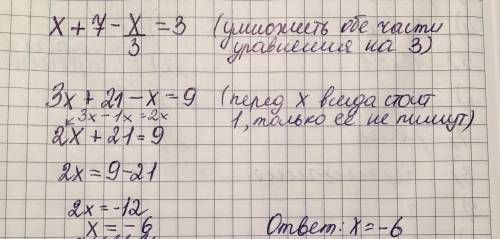 x + 7 - x/3 = 3 (умножить обе части
уравнения на 3)
3x + 21 - x = 9 (перед x всегда стоит
3x - 1x = 2x 1, только её не пишут)
2x + 21 = 9
2x = 9 - 21
2x = -12
x = -6 Ответ: x = -6